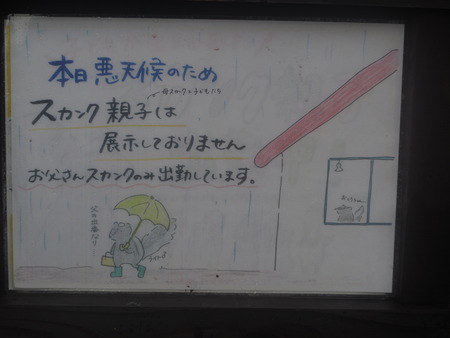 本日 悪天候のため
母スカンクと子どもたち
スカンク 親子は
展示しておりません
お父さんスカンクのみ 出勤しています。
父の出番だ!